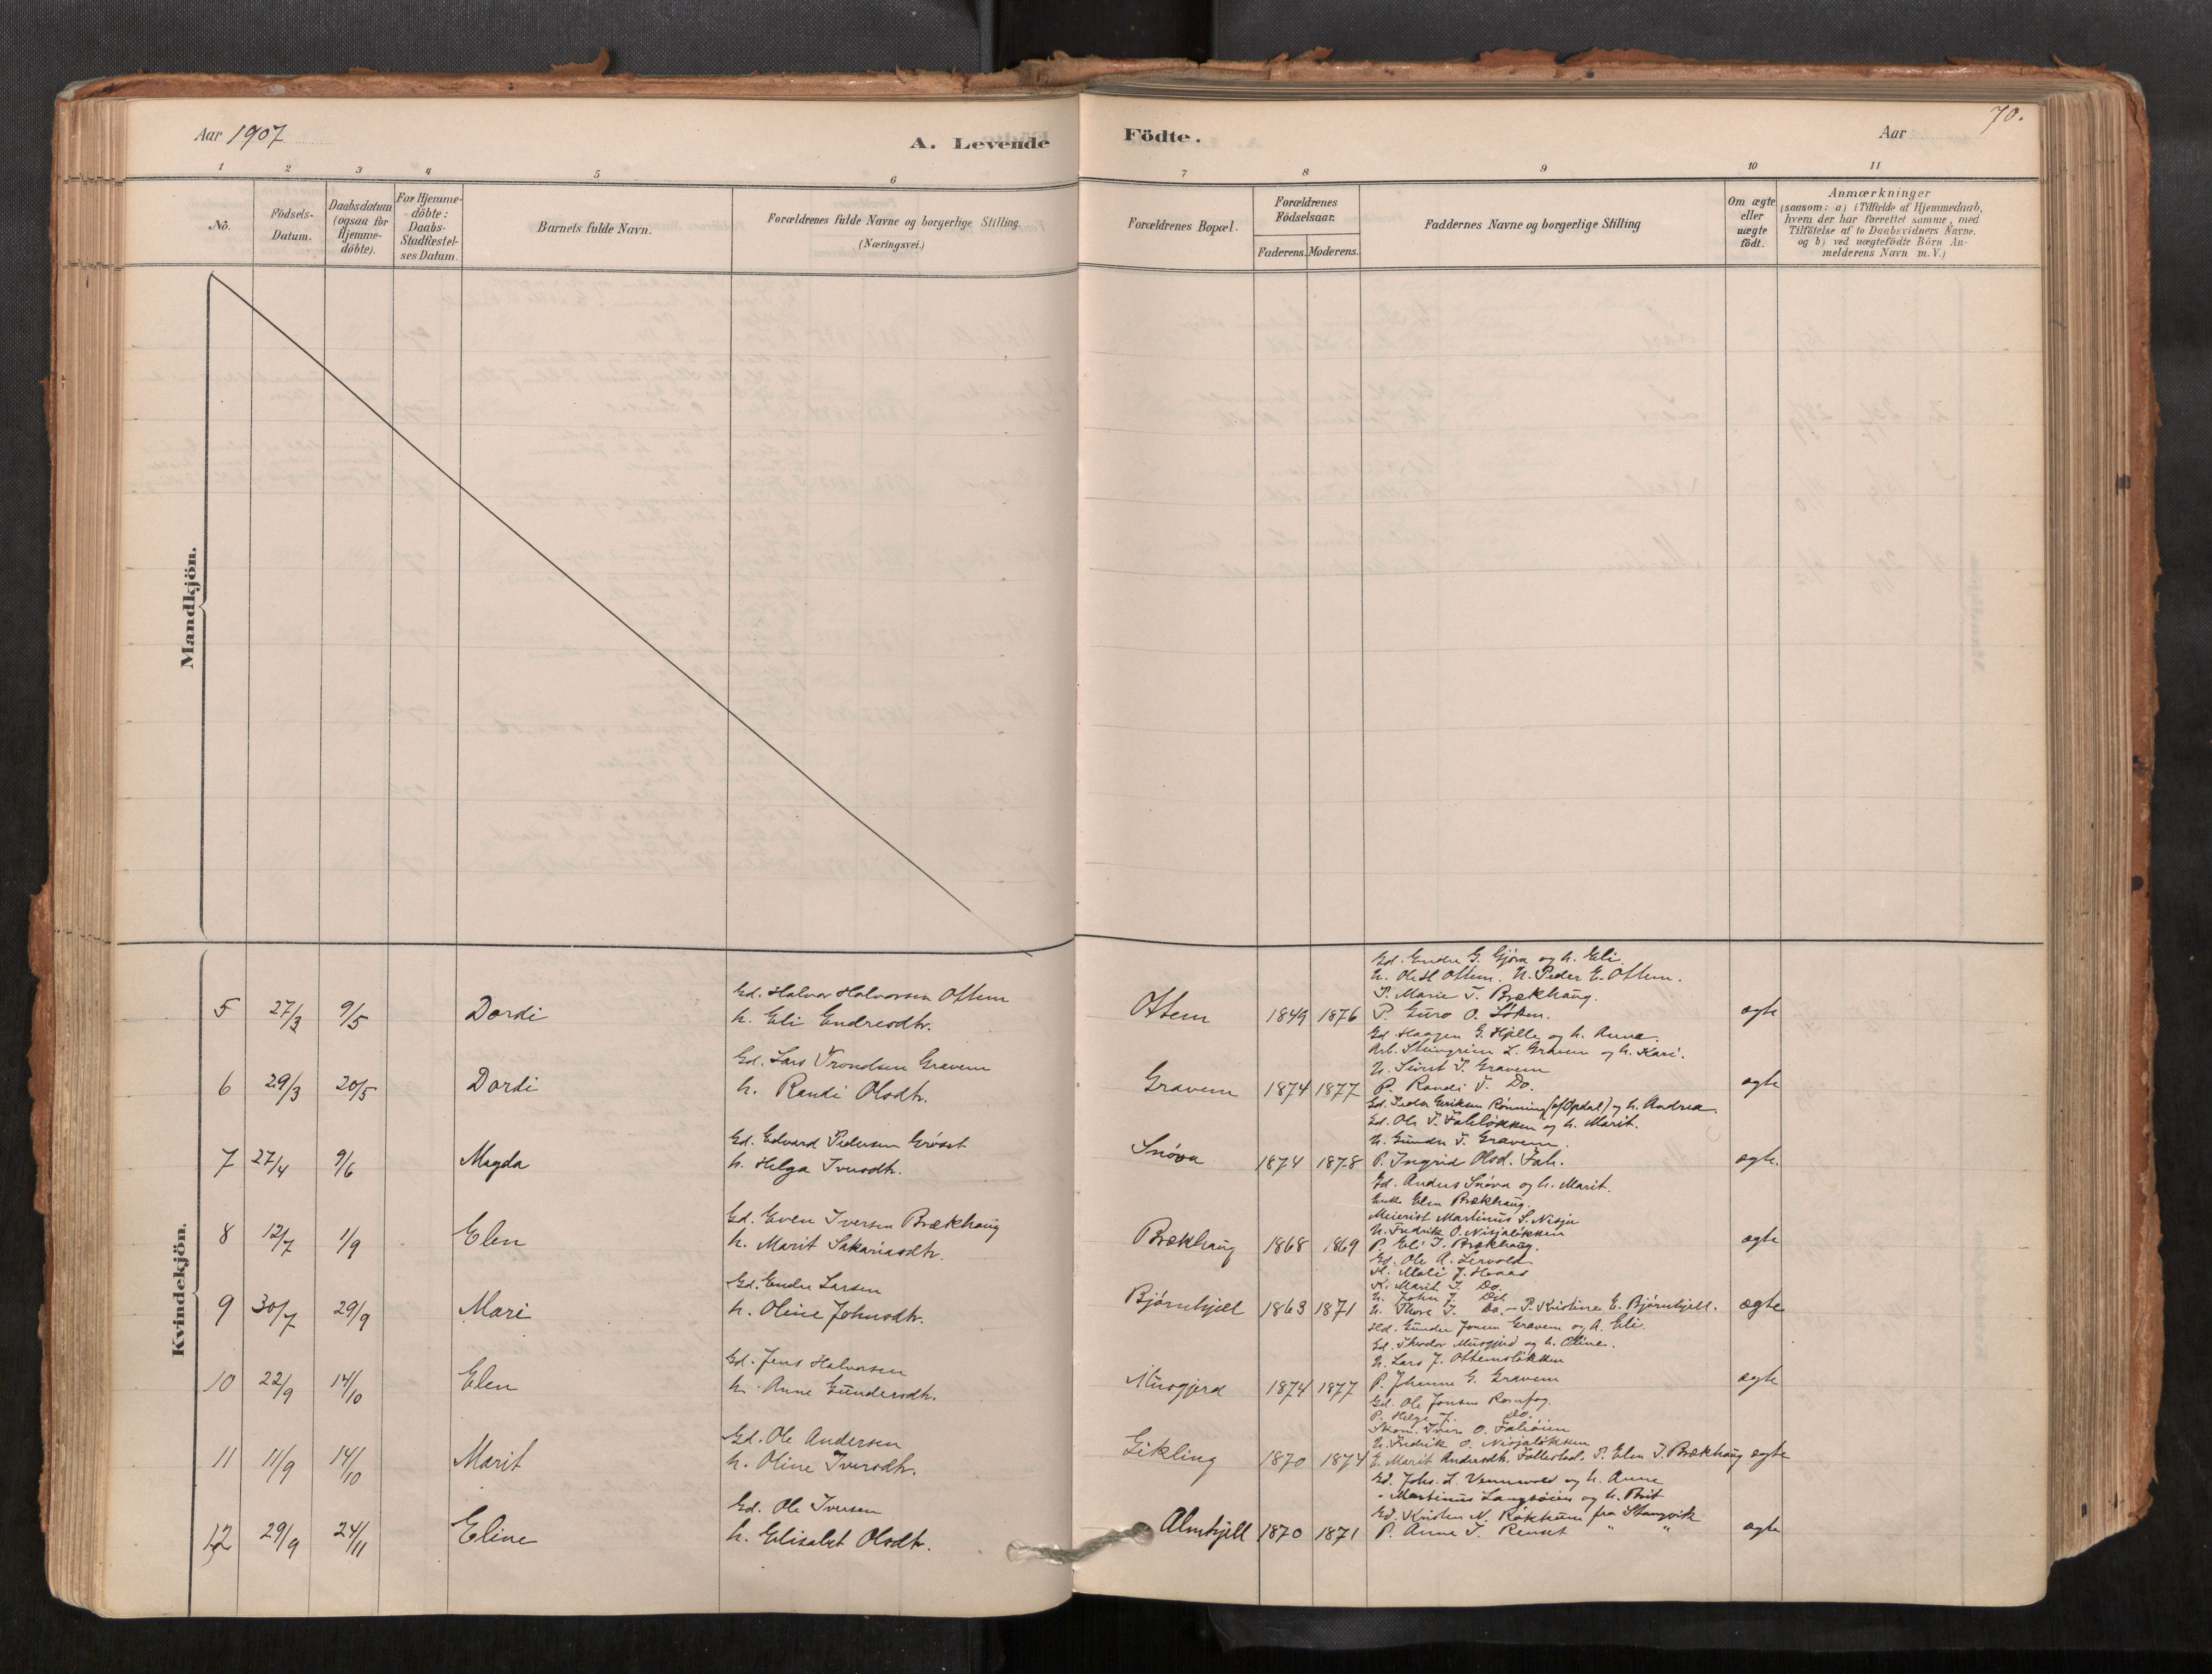 Aar 1907
A. Levende
Födte.
Aar
70.
1 2 3 4 5 6 7 8 9 10 11
No.
Födsels-Datum.
Daabsdatum (ogsaa for Hjemme-döbte).
For Hjemme-döbte: Daabs-Stadfæstel-ses Datum.
Barnets fulde Navn.
Forældrenes fulde Navne og borgerlige Stilling (Næringsvei.)
Forældrenes Bopæl.
Forældrenes Födselsaar.
Faderens. Moderens.
Faddernes Navne og borgerlige Stilling
Om ægte eller uægte födt.
Anmærkninger
(saasom: a) i Tilfælde af Hjemmedaab,
hvem der har forrettet samme, med
Tilföielse af to Daabsvidners Navne,
og b) ved uægtefödte Börn An-
melderens Navn m.V.)
Mandkjön.
Kvindekjön.
5 27/3 9/5 Dordi
Gd. Halvor Halvorsen Ottem
h. Eli Endresdtr.
Ottem 1849 1876
Gd. Endre G. Gjöra og h. Eli.
U. Ole H Ottem. U. Peder E. Ottem.
P. Marie T. Brækhaug.
P. Guro O. Löken.
ægte
6 29/3 20/5 Dordi
Gd. Lars Trondsen Gravem
h. Randi Olsdtr.
Gravem 1874 1877
Gd Haagen G. Hjelle og h. Anne.
Arb. Steingrim L. Gravem og h. Kari.
U. Sivert T. Gravem
P. Randi T. Do.
ægte
7 27/4 9/6 Magda
Gd. Edvard Pedersen Gröset
h. Helga Iversdtr.
Snöva 1874 1878
Gd. Peder Eriksen Rönning (af Opdal) og h. Andrea.
Gd. Ole T. Falelökken og h. Marit.
U. Gunder T. Gravem.
P. Ingrid Olsd. Fale.
ægte.
8 12/7 1/9 Elen
Gd. Even Iversen Brækhaug
h. Marit Sakariasdtr.
Brækhaug 1868 1869
Gd. Anders Snöva og h. Marit.
Enke Elen Brækhaug.
Meierist Martinus S. Nisja
U. Fredrik O. Nisjalökken
P. Eli I. Brækhaug.
ægte
9 30/7 29/9 Mari
Gd. Endre Larsen
h. Oline Johnsdtr.
Bjørnhjell 1863 1871
Gd. Ole A. Lervold
K. Mali J. Hoaas
K. Marit J. Do.
U. John J. Do.
U. Thore J. Do. - P. Kristine E. Bjørnhjell.
ægte
10 22/9 14/10 Elen
Gd. Jens Halvorsen
h. Anne Gundersdtr.
Musgjerd 1874 1877
Hd. Gunder Jonsen Gravem og h. Eli.
Gd. Theodor Musgjerd og h. Oline.
U. Lars J. Ottemslökken
P. Johanne G. Gravem
ægte
11 11/9 14/10 Marit
Gd. Ole Andersen
h. Oline Iversdtr.
Gikling 1870 1874
Gd. Ole Jonsen Romfog.
P. Helge J. Do.
Skom. Iver O. Faleöien
U. Fredrik O. Nisjalökken
E. Marit Andersdtr. Follestad. P. Elen I. Brækhaug
ægte
12 29/9 24/11 Eline
Gd. Ole Iversen
h. Elisabet Olsdtr.
Almhjell 1870 1871
Gd. Johs. L. Vennevold og h. Anne
- Martinus Langsöien og h. Brit
Gd. Kristen N. Rökkum fra Stangvik
P. Anne T. Renset " "
ægte